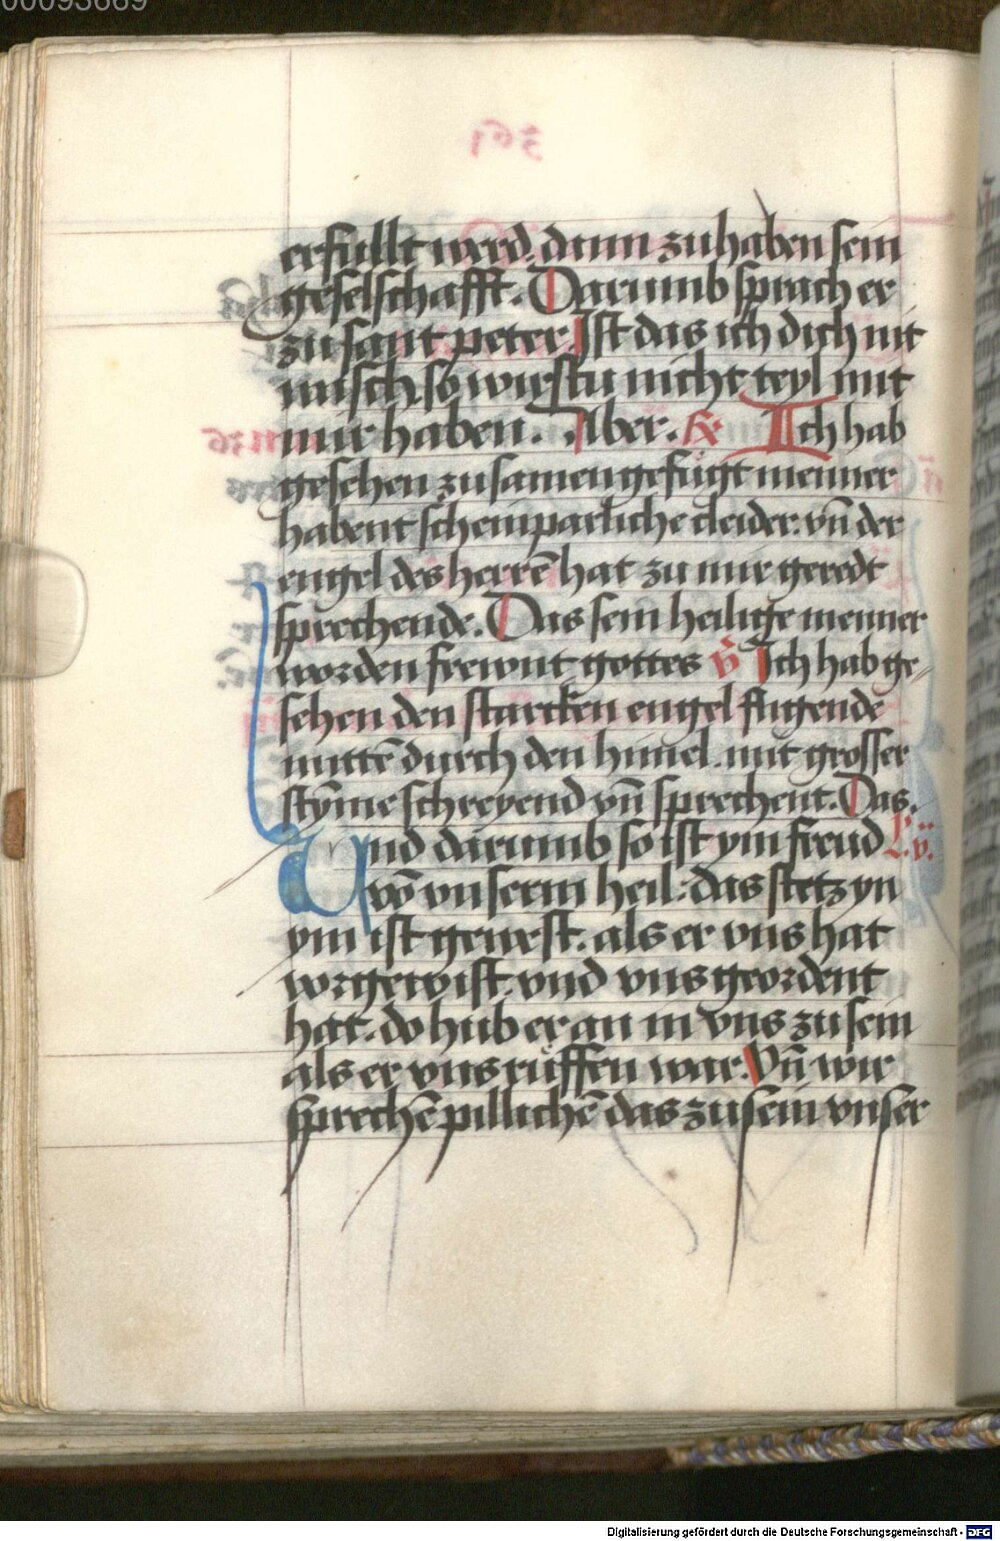 00093669
erfullt werd. dann zu haben sein
geselschafft. Darumb sprach er
zu sant peter Ist das ich dich nit
wisch. so wirstu nicht teyl mit
mir haben. Aber. Ich hab
gesehen zusamengefügt menner
habent scheinparliche cleider. vn̄ der
engel des herrē hat zu mir geredt
sprechende. Das sein heilige menner
worden frewnt gottes v̄ Ich hab ge⸗
sehen den starcken engel flugende
mittē durch den himel. mit grosser
stȳme schreyend vn̄ sprechent. Das.
Und darumb so ist ym freud L. ij.
vō vnserm heil: das stetz yn
ym ist gewest. als er vns hat
vorgewist. vnd vns geordent
hat. do hub er an in vns zu sein
als er vns rüffen war. Vn̄ wir
sprechē pillichē das zu sein vnser
Digitalisierung gefördert durch die Deutsche Forschungsgemeinschaft - DFG